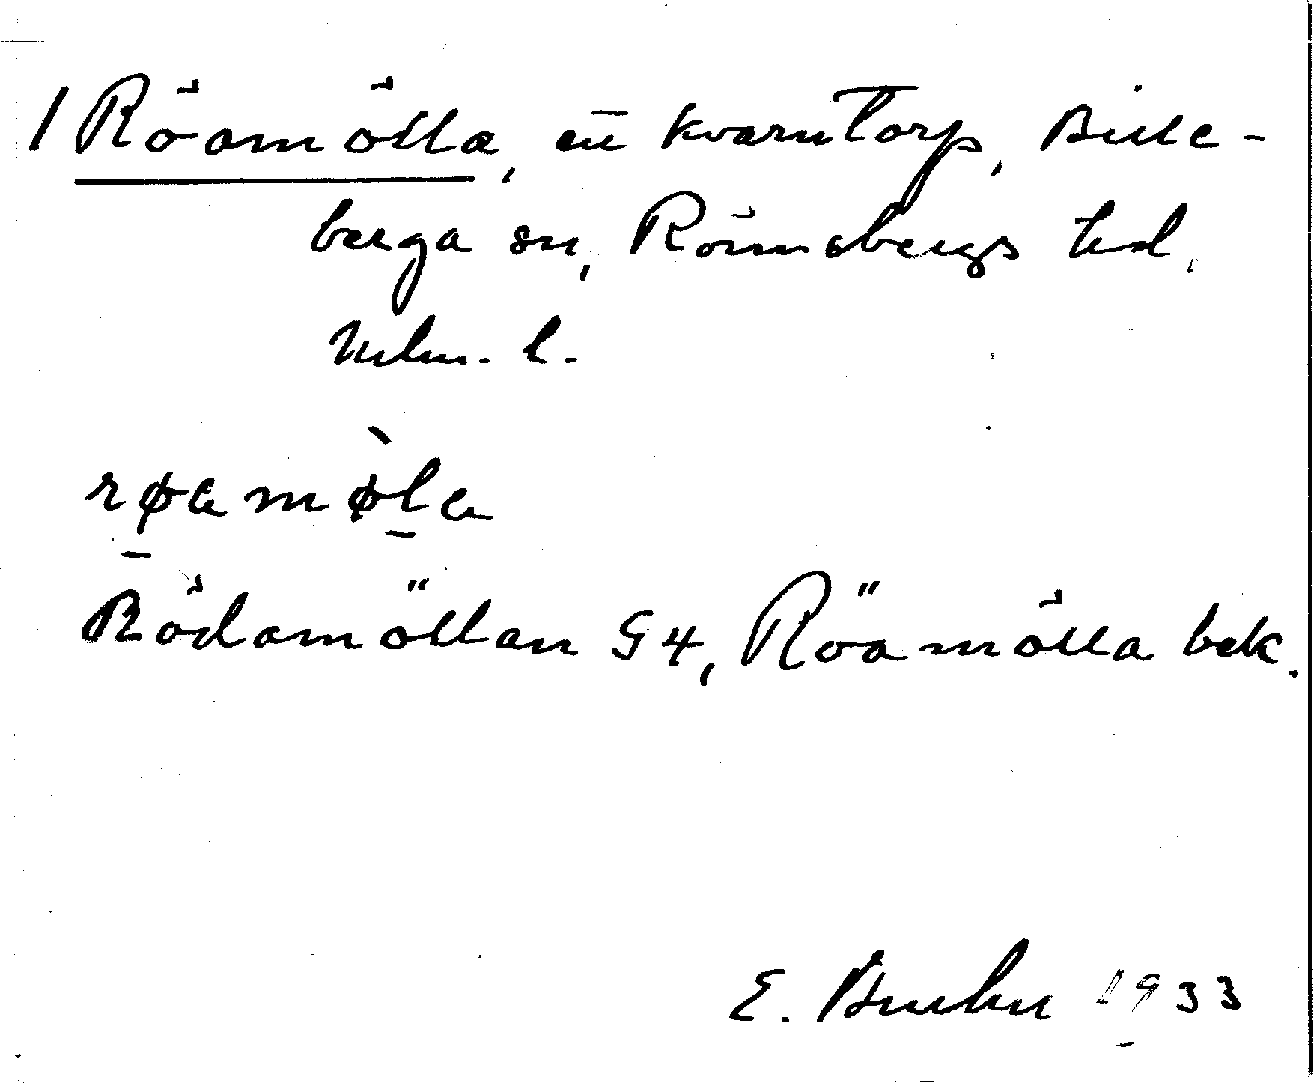 1 Röamölla, en kvarntorp, Bille-
berga sn, Rönnebergs hd,
Mlm. l.
røamø̀la
Rödamöllan G4, Röamölla bek.
E. Bruhn 1933